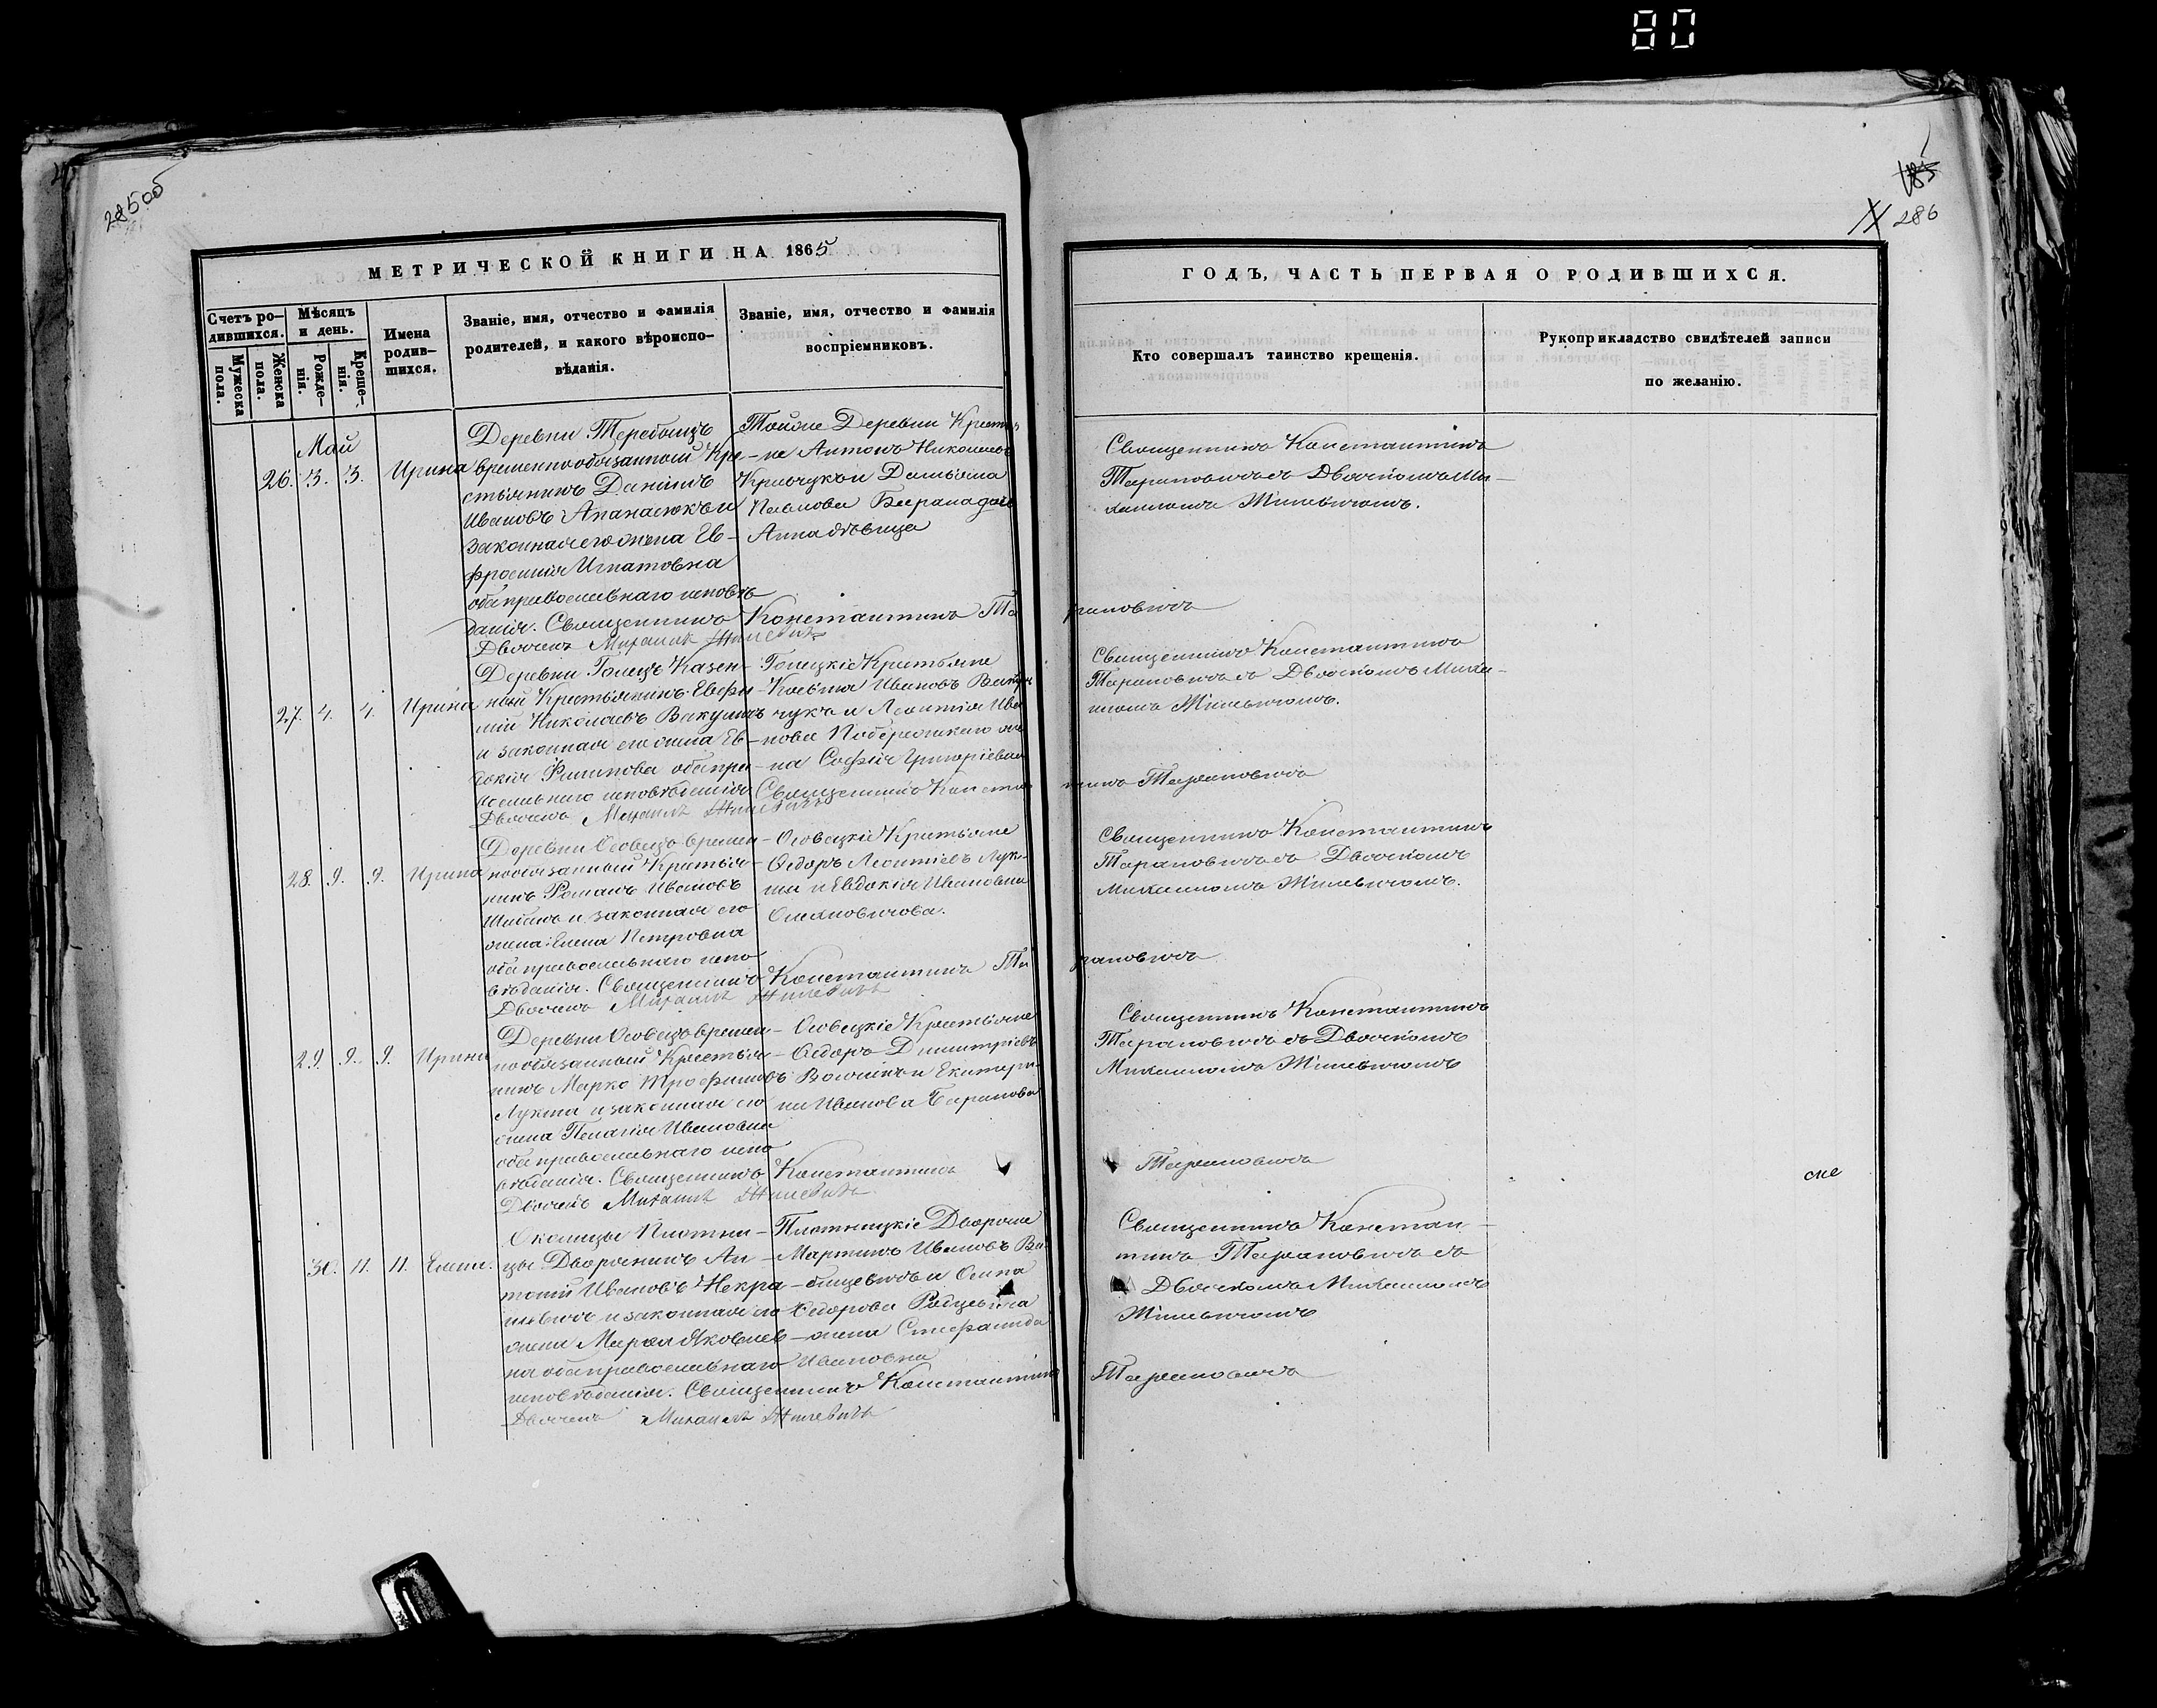 80
285 об
185
286
МЕТРИЧЕСКОЙ КНИГИ НА 1865
Счетъ ро-
дившихся.
Мужеска
пола.
Женска
пола.
Мѣсяцъ
и день.
Рожде-
нія.
Креще-
нія.
Имена
родив-
шихся.
Званіе, имя, отчество и фамилія
родителей, и какого вѣроиспо-
вѣданія.
Званіе, имя, отчество и фамилія
воспріемниковъ.
ГОДЪ, ЧАСТЬ ПЕРВАЯ О РОДИВШИХСЯ.
Кто совершалъ таинство крещенія.
Рукоприкладство свидѣтелей записи
по желанію.
Май
26. 3. 3. Ирина
Деревни Теребощъ
временнообязанный Кре-
стьянинъ Даніилъ
Ивановъ Апанасюкъ и
законная его жена Ев-
фросинія Игнатовна
оба православнаго исповѣ
данія. Священникъ Константинъ Та
рановичъ
Дьячекъ Михаилъ Жилевичъ
Тойже Деревни Крестья
не Антонъ Николаевъ
Кравчукъ и Дамьяна
Павлова Барана дочь
Анна дѣвица
Священникъ Константинъ
Тарановичъ съ Дьячкомъ Ми-
хаиломъ Жилевичомъ.
27. 4. 4. Ирина
Деревни Голецъ Казен-
ный Крестьянинъ Евфи-
мій Николаевъ Вакуличъ
и законная его жена Ев-
докія Филипова оба пра-
вославнаго исповѣданія Священникъ Констан
тинъ Тарановичъ
Дьячекъ Михаилъ Жилевичъ
Голецкіе Крестьяне
Ивановъ
чукъ и Леонтія Ива
нова
на Софія Григоріевна
Священникъ Константинъ
Тарановичъ съ Дьячкомъ Миха-
иломъ Жилевичомъ.
28. 9. 9. Ирина
Деревни Осовецъ времен-
нообязанный Крестья-
нинъ Романъ Ивановъ
и законная его
жена Елена Петровна
оба православнаго испо
вѣданія. Священникъ Константинъ Та
рановичъ
Дьячекъ Михаилъ Жилевичъ
Осовецкіе Крестьяне
Ѳедоръ Леонтіевъ Лук-
ша и Евдокія Ивановна
Омеляновичова.
Священникъ Константинъ
Тарановичъ съ Дьячкомъ
Михаиломъ Жилевичомъ.
29. 9. 9. Ирина
Деревни Осовецъ времен-
нообязанный Крестья-
нинъ Марко Трофимовъ
Лукша и законная его
жена Пелагія Ивановна
оба православнаго испо
вѣданія. Священникъ Константинъ
Тарановичъ
Дьячекъ Михаилъ Жилевичъ
Осовецкіе Крестьяне
Ѳедоръ Димитріевъ
и Екатери-
на Иванова Баранова
Священникъ Константинъ
Тарановичъ съ Дьячкомъ
Михаиломъ Жилевичомъ
30. 11. 11. Елена.
Околицы Плотни-
цы Дворянинъ Ан-
тоній Ивановъ Некра-
шевичъ и законная его
жена Марѳа Яковлев-
на оба православнаго
исповѣданія. Священникъ Константинъ
Тарановичъ
Дьячекъ Михаилъ Жилевичъ
Плотницкіе Дворяне
Мартинъ Ивановъ
и Осипа
Ѳедорова
жена Стефанида
Ивановна
Священникъ Констан-
тинъ Тарановичъ съ
Дьячкомъ Михаиломъ
Жилевичомъ